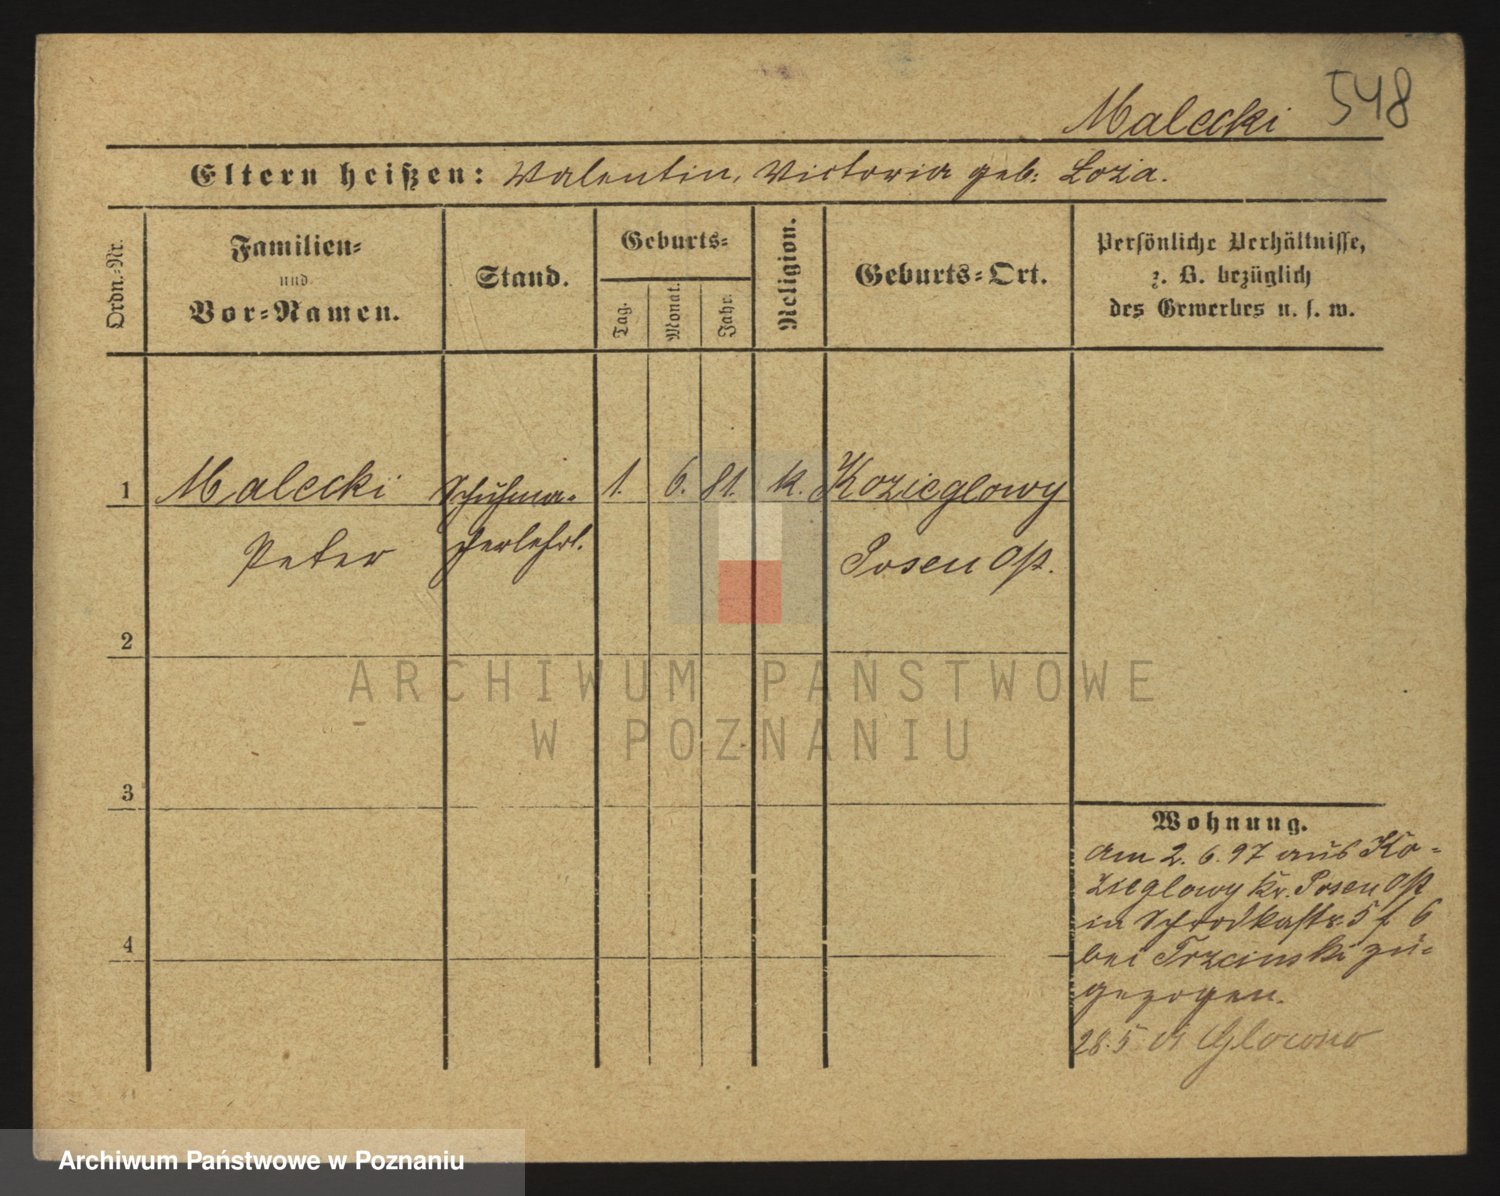 548
Malecki
Eltern heißen: Valentin, Victoria geb: Łozia.
Ordn.=Nr.
Familien=
und
Vor=Namen.
Stand.
Geburts=
Tag.
Monat.
Jahr.
Religion.
Geburts=Ort.
Persönliche Verhältnisse,
z. B. bezüglich
des Gewerbes u. s. w.
1 Malecki Schuhma= 1. 6. 81. k. Kozieglowy
Peter cherlehrl. Posen Ost.
2
3
4
Wohnung.
Am 2. 6. 97 aus Ko=
zieglowy Kr. Posen Ost
in Schrodkastr. 5 f 6
bei Trzcinski zu=
gezogen.
28.5
ARCHIWUM PAŃSTWOWE
W POZNANIU
Archiwum Państwowe w Poznaniu